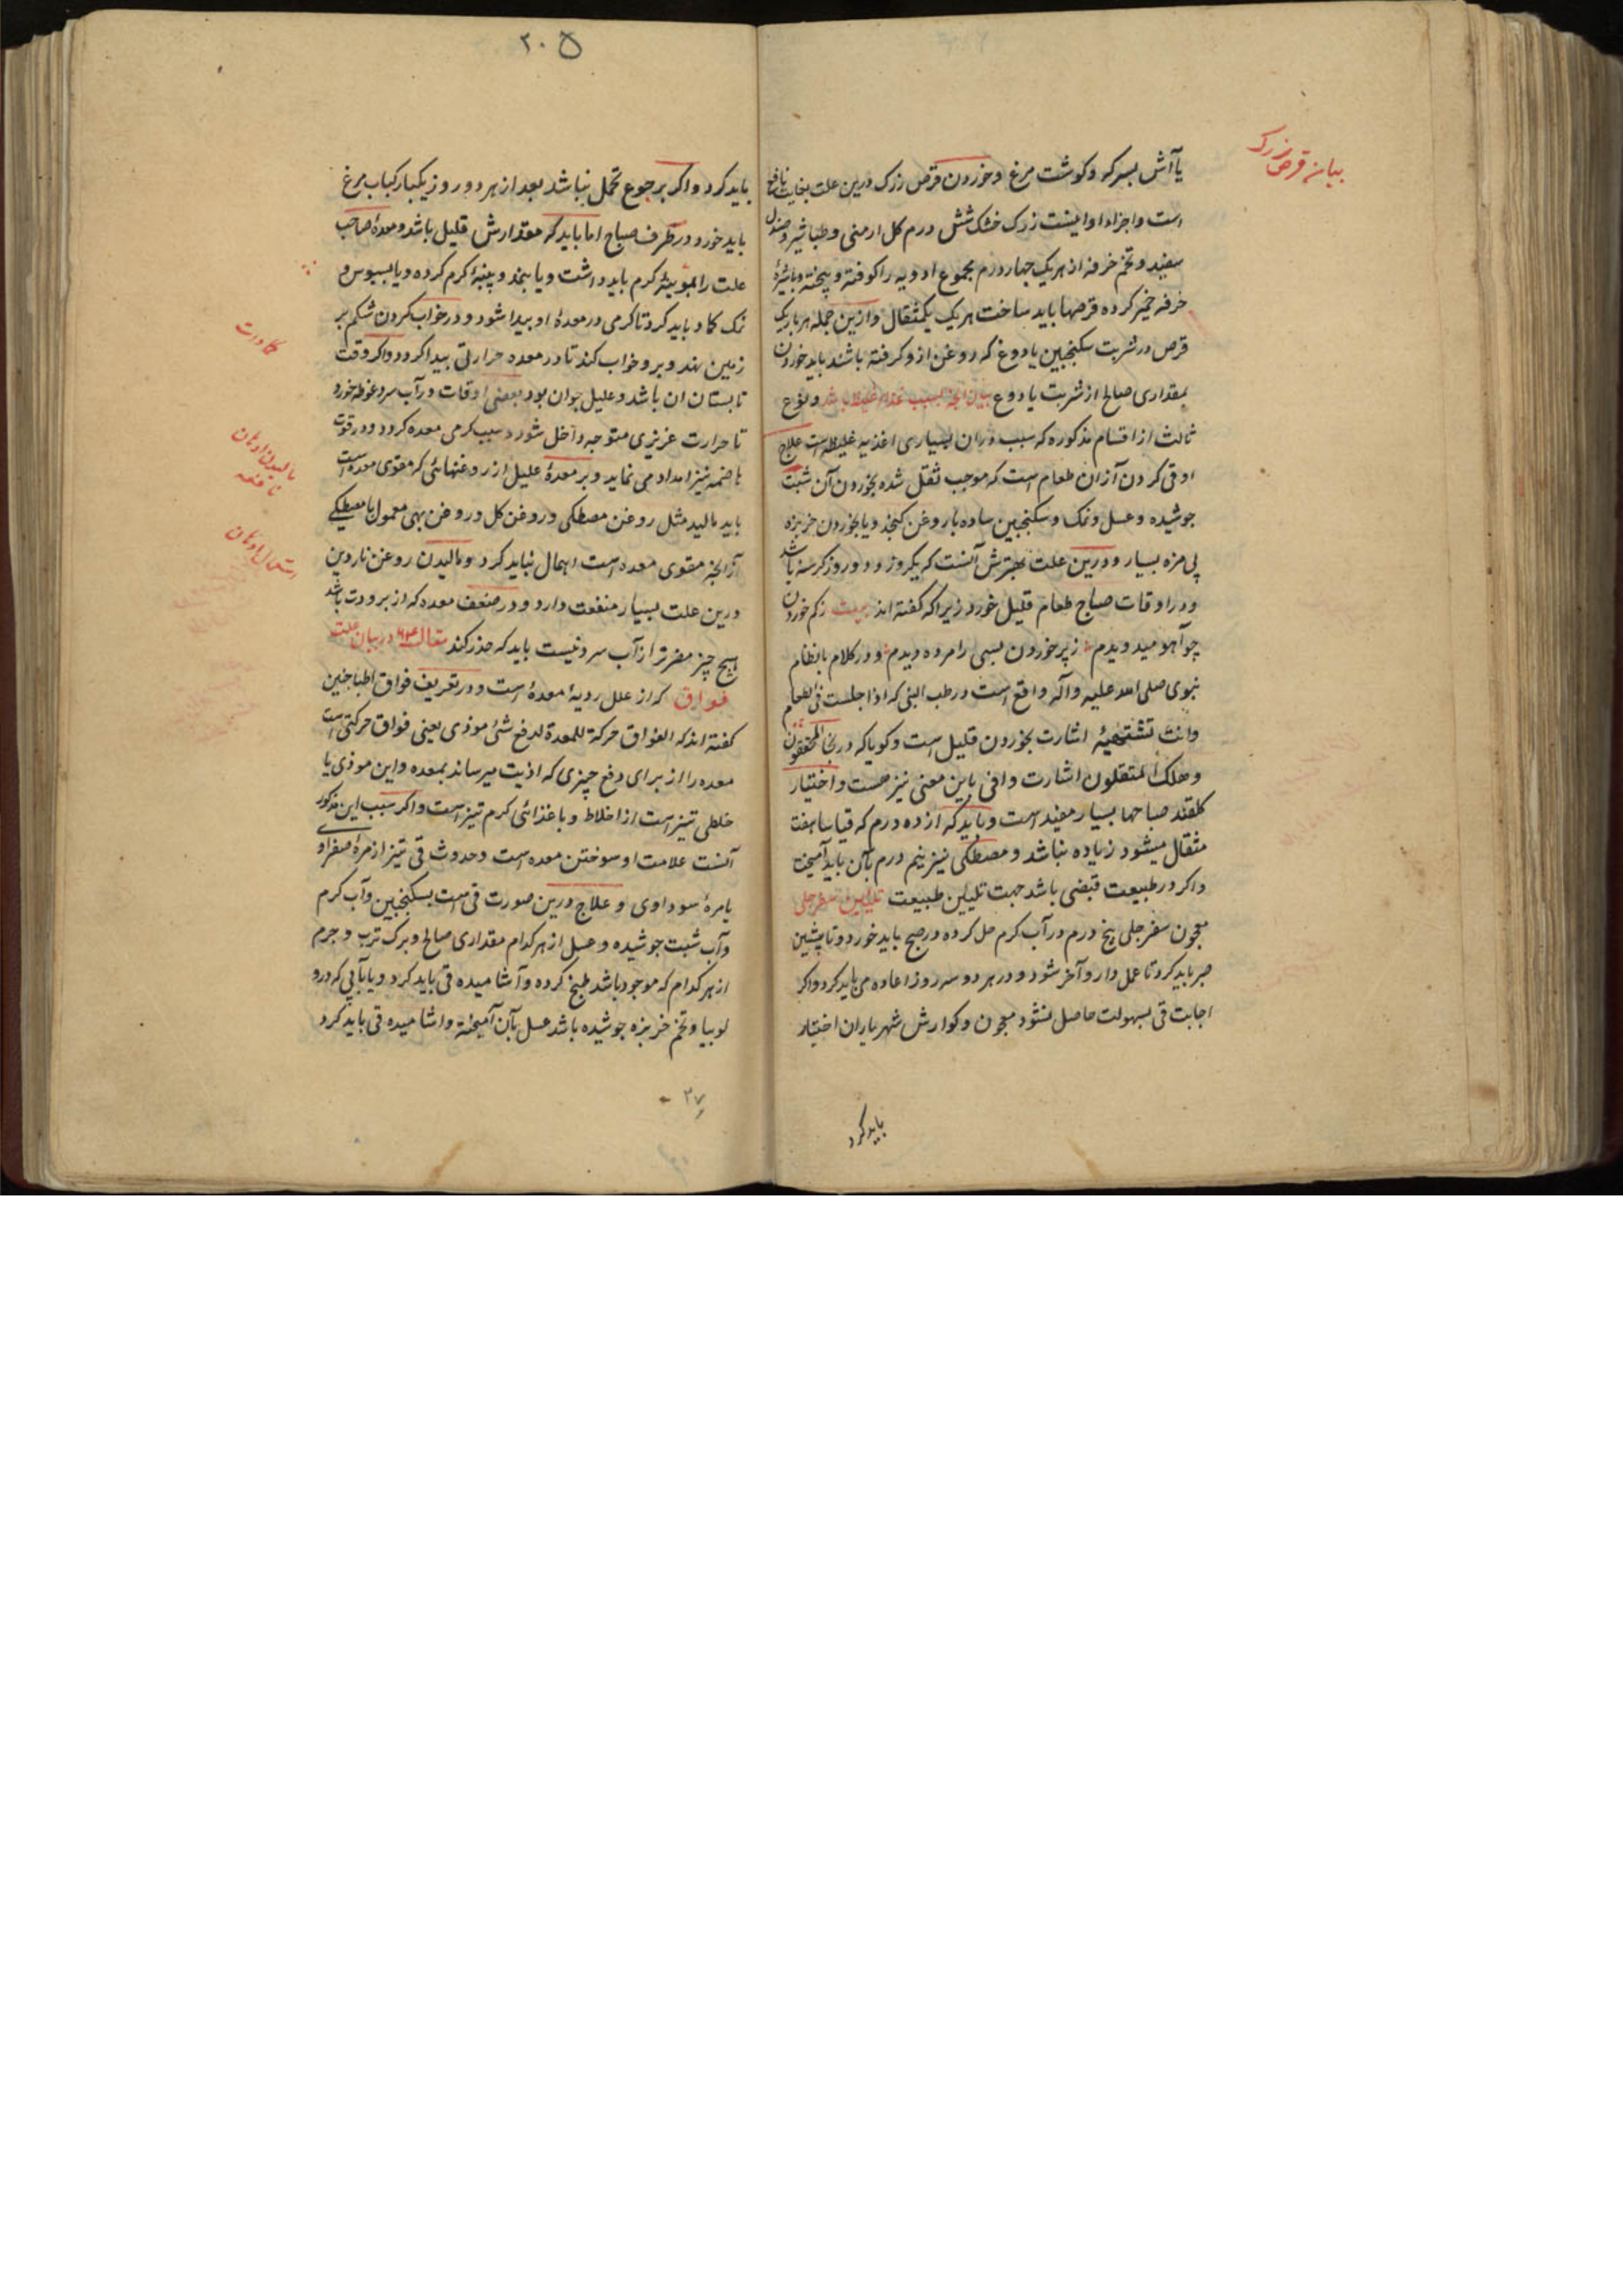 بیان قرص زرک
یا آش بسرکه و کوشت مرغ و خوردن قرص زرک درین علت بغایت نافع
است و اجزاء او اینست زرک خشک شش درم کل ارمنی و طباشیر و صندل
سفید و تخم خرفه از هر یک چهار درم مجموع ادویه را کوفته و بیخته و با شیرهٔ
خرفه خمیر کرده قرصها باید ساخت هر یک یکمثقال و ازین جمله هر بار یک
قرص در شربت سکنجبین یا دوغ که روغن ازو کرفته باشند باید خوردن
بمقداری صالح از شربت یا دوغ بیان آنچه بسبب غذاء غلیظ باشد و نوع
ثالث از اقسام مذکوره که سبب دران بسیاری اغذیه غلیظه است علاج
او قی کردن آزان طعام است که موجب ثقل شده بخوردن آن شبت
جوشیده و عسل و نمک و سکنجبین ساده با روغن کنجد و یا بخوردن خربزه
بی مزه بسیار و درین علت بهترش آنست که یکروز و دو روز کرسنه باشد
و در اوقات صباح طعام قلیل خورد زیرا که کفته اند بیت زکم خوردن
چو آهو میدویدم ز پر خوردن بسی را مرده دیدم و در کلام با نظام
نبوی صلی الله علیه وآله واقع است در طب النبی که اذا جلست فی الطعام
وانت تشتهیه اشارت بخوردن قلیل است و کویا که در نجا المخففون
و هلک المثقلون اشارت وافی باین معنی نیز هست و اختیار
کلقند صباحها بسیار مفید است و باید که از ده درم که قیاسا هفت
مثقال میشود زیاده نباشد و مصطکی نیز نیم درم بآن باید آمیخت
و اکر در طبیعت قبضی باشد جهت تلیین طبیعت تلیین سفرجلی
معجون سفرجلی پنج درم در آب کرم حل کرده در صبح باید خورد و تا پشین
صبر باید کرد تا عمل دارو آخر شود و در هر دو سه روز اعاده می باید کرد و اکر
اجابت قی بسهولت حاصل نشود معجون و کوارش شهریاران اختیار
باید کرد
۲۰۵
باید کرد و اکر بر جوع تحمل نباشد بعد از هر دو روز یکبار کباب مرغ
باید خورد در طرف صباح اما باید که مقدارش قلیل باشد و معدهٔ صاحب
علت را کرم باید داشت و یا بنمد و پنبهٔ کرم کرده و یا بسبوس و
نمک کماد باید کرد تا کرمی در معدهٔ او پیدا شود و در خواب کردن شکم بر
زمین نهد و برو خواب کند تا در معده حرارتی پیدا کردد و اکر وقت
تابستان ان باشد و علیل جوان بود بعضی اوقات در آب سرد غوطه خورد
تا حرارت غریزی متوجه داخل شود و سبب کرمی معده کردد و در قوت
هاضمه نیز امداد می نماید و بر معدهٔ علیل از روغنهائی که مقوی معده است
باید مالید مثل روغن مصطکی و روغن کل و روغن بهی معمول با مصطکی
آزانچه مقوی معده است اهمال نباید کرد و مالیدن روغن ناردین
درین علت بسیار منفعت دارد و در ضعف معده که از برودت باشد
هیچ چیز مضرتر از آب سرد نیست باید که حذر کند مقاله در بیان علت
فواق که از علل ردیهٔ معده است و در تعریف فواق اطبا چنین
کفته اند که الفواق حرکة للمعدة لدفع شئ موذی یعنی فواق حرکتی است
معده را از برای دفع چیزی که اذیت میرساند بمعده و این موذی یا
خلطی تیز است از اخلاط و یا غذائی کرم تیز است و اکر سبب این مذکور
آنست علامت او سوختن معده است و حدوث قی تیز از مرهٔ صفراوی
یا مرهٔ سوداوی و علاج درین صورت قی است بسکنجبین و آب کرم
و آب شبت جوشیده و عسل از هر کدام مقداری صالح و برک ترب و جرم
از هر کدام که موجود باشد طبخ کرده و آشامیده قی باید کرد و یا بآبی که درو
لوبیا و تخم خربزه جوشیده باشد عسل بآن آمیخته و اشامیده قی باید کرد
مالیدن ادهان نافعه
استعمال ادهان
۳۷